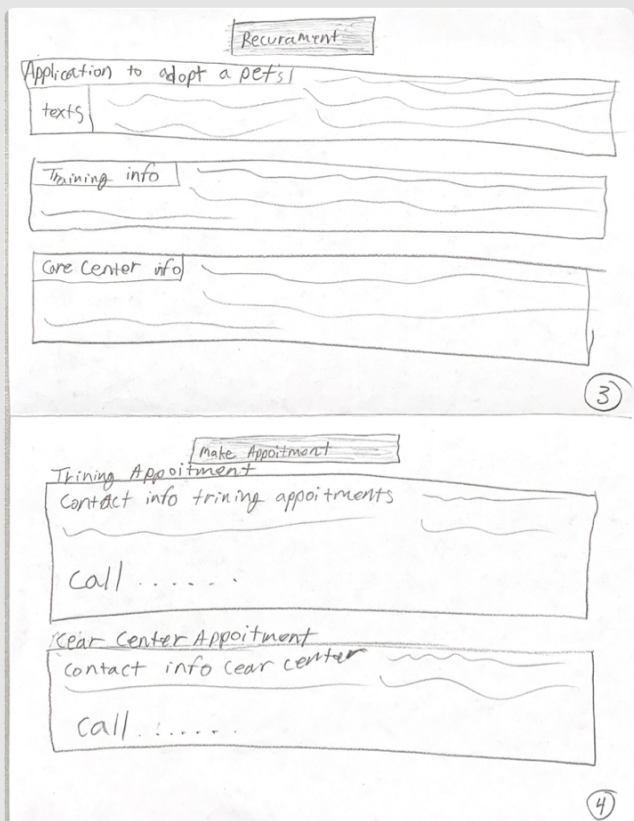 Recurament
Application to adopt a pets
texts
Training info
Care Center info
3
Make Appoitment
Trining Appoitment
Contact info trining appoitments
Call ......
Cear Center Appoitment
Contact info cear center
Call .......
4